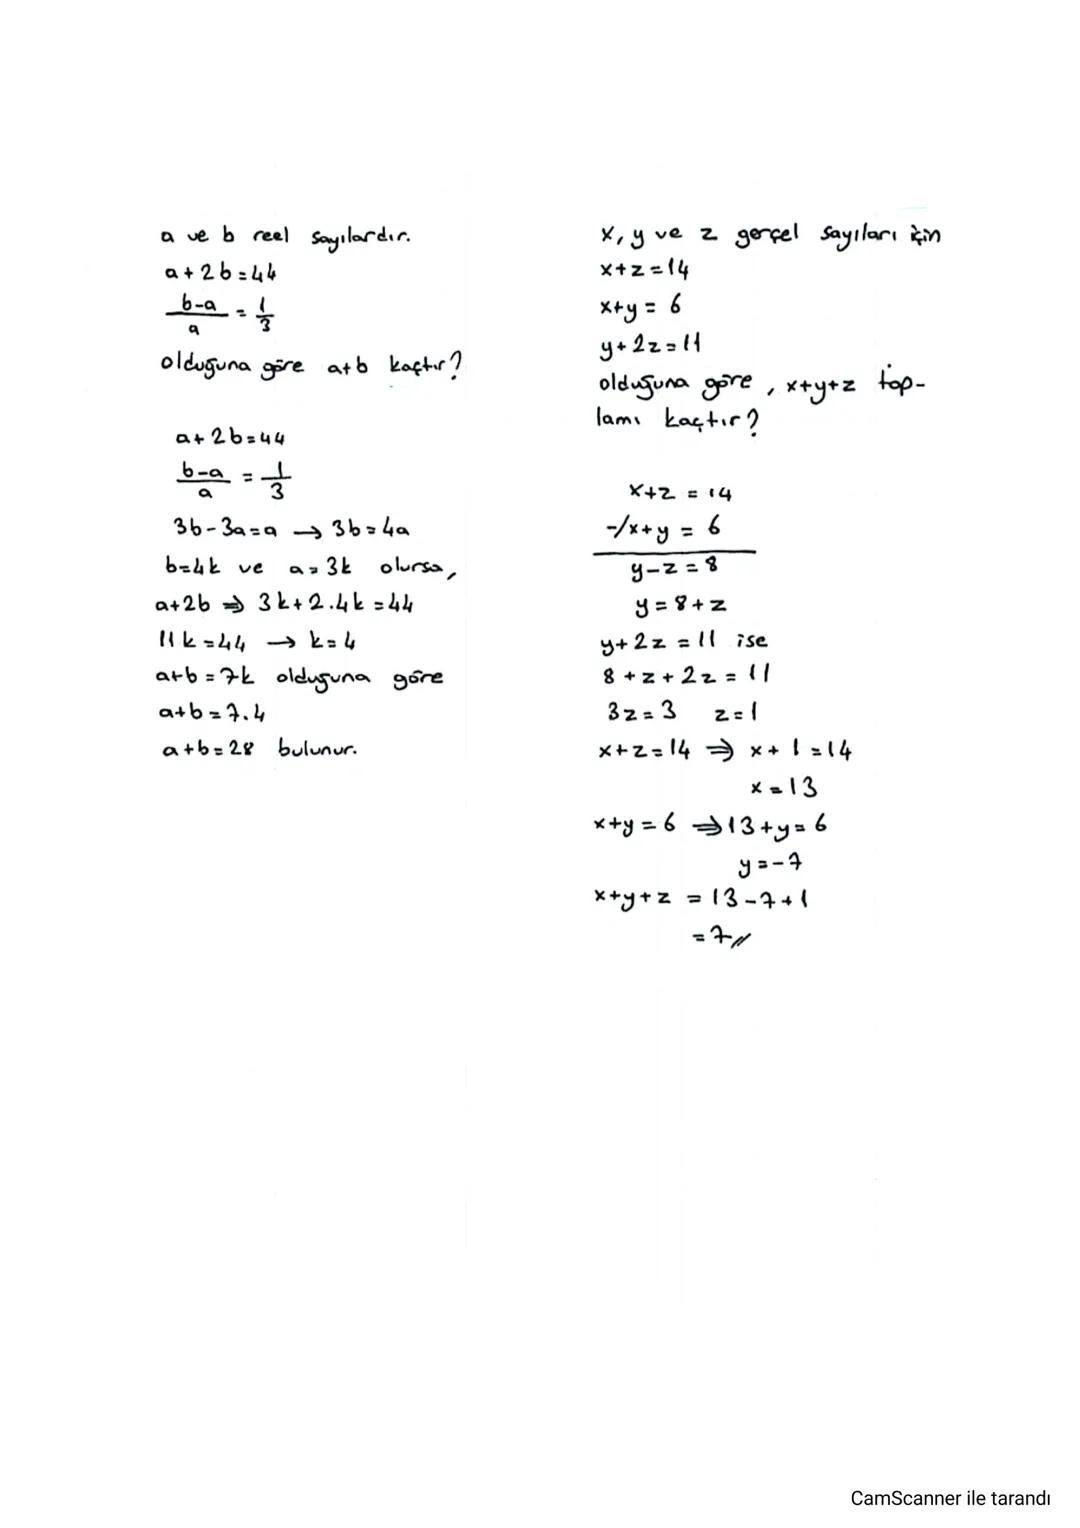 a ve b reel sayılardır.
a+2b=44
b-a/a = 1/3
olduğuna göre a+b kaçtır?
a+2b=44
b-a/a = 1/3
3b-3a=a → 3b=4a
b=4k ve a=3k olursa,
a+2b ⇒ 3k+2.4k=44
11k=44 → k=4
a+b=7k olduğuna göre
a+b=7.4
a+b=28 bulunur.
x, y ve z gerçel sayıları için
x+z=14
x+y=6
y+2z=11
olduğuna göre, x+y+z top-
lamı kaçtır?
x+z=14
-/x+y=6
y-z=8
y=8+z
y+2z=11 ise
8+z+2z=11
3z=3 z=1
x+z=14 ⇒ x+1=14
x=13
x+y=6 ⇒ 13+y=6
y=-7
x+y+z = 13-7+1
=7//
CamScanner ile tarandı